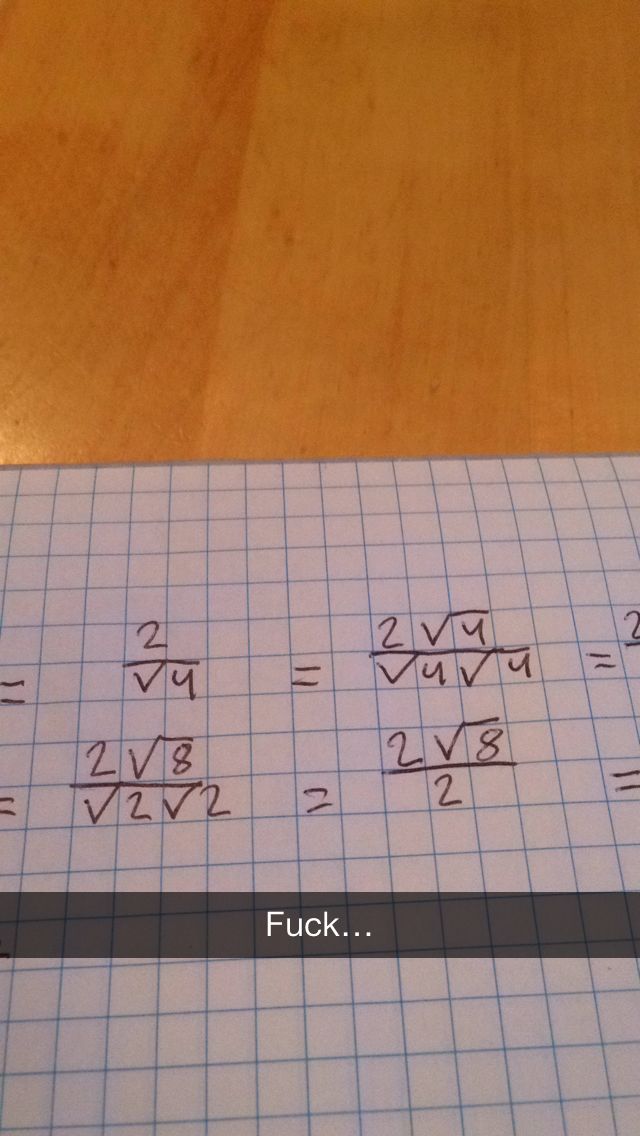 = 2/√4 = 2√4/√4√4 = 2
= 2√8/√2√2 = 2√8/2 =
Fuck...